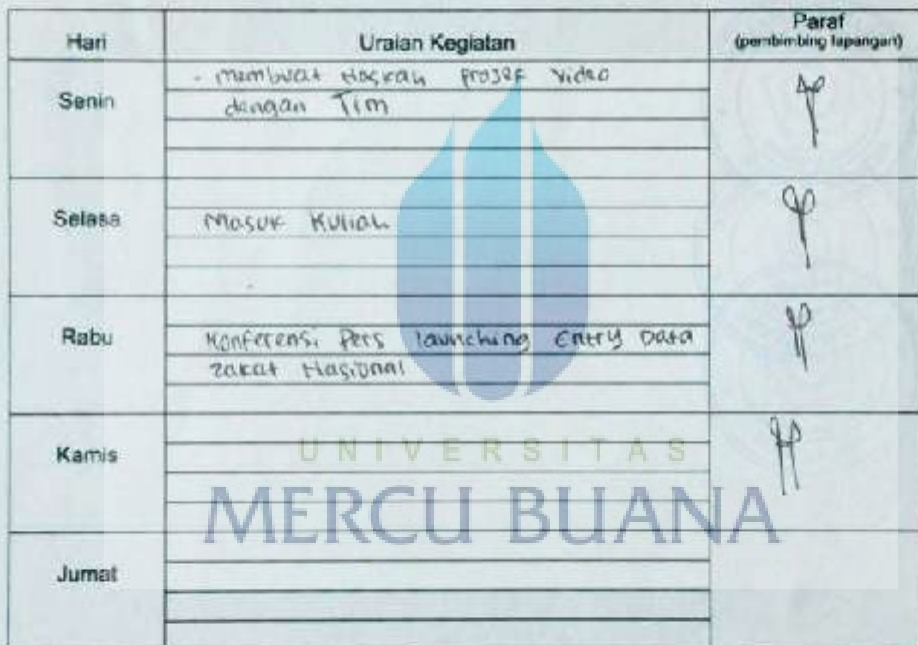 Hari Uraian Kegiatan Paraf
(pembimbing lapangan)
Senin
- membuat Naskah projek video
dengan Tim
Selasa
Masuk Kuliah
Rabu
Konferensi Pers launching Entry Data
Zakat Nasional
Kamis
UNIVERSITAS
MERCU BUANA
Jumat